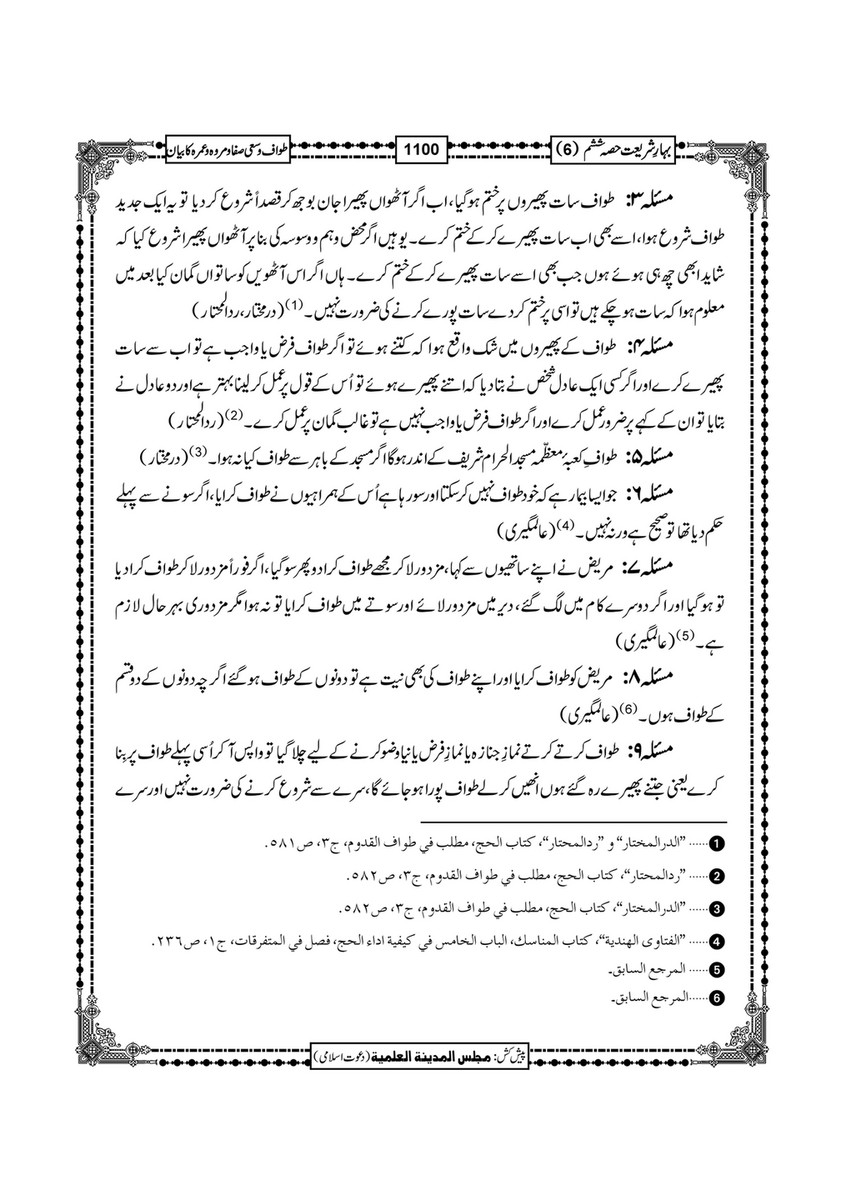 بہارِ شریعت حصہ ششم (6)
1100
طواف وسعی صفا و مروہ و عمرہ کا بیان
مسئلہ ۳: طواف سات پھیروں پر ختم ہوگیا، اب اگر آٹھواں پھیرا جان بوجھ کر قصداً شروع کر دیا تو یہ ایک جدید
طواف شروع ہوا، اسے بھی اب سات پھیرے کرکے ختم کرے۔ یوہیں اگر محض وہم و وسوسہ کی بنا پر آٹھواں پھیرا شروع کیا کہ
شاید ابھی چھ ہی ہوئے ہوں جب بھی اسے سات پھیرے کرکے ختم کرے۔ ہاں اگر اس آٹھویں کو ساتواں گمان کیا بعد میں
معلوم ہوا کہ سات ہو چکے ہیں تو اسی پر ختم کر دے سات پورے کرنے کی ضرورت نہیں۔(1) (درمختار، ردالمحتار)
مسئلہ ۴: طواف کے پھیروں میں شک واقع ہوا کہ کتنے ہوئے تو اگر طواف فرض یا واجب ہے تو اب سے سات
پھیرے کرے اور اگر کسی ایک عادل شخص نے بتا دیا کہ اتنے پھیرے ہوئے تو اُس کے قول پر عمل کر لینا بہتر ہے اور دو عادل نے
بتایا تو ان کے کہے پر ضرور عمل کرے اور اگر طواف فرض یا واجب نہیں ہے تو غالب گمان پر عمل کرے۔(2) (ردالمحتار)
مسئلہ ۵: طوافِ کعبۂ معظّمہ مسجد الحرام شریف کے اندر ہوگا اگر مسجد کے باہر سے طواف کیا نہ ہوا۔(3) (درمختار)
مسئلہ ۶: جو ایسا بیمار ہے کہ خود طواف نہیں کرسکتا اور سو رہا ہے اُس کے ہمراہیوں نے طواف کرایا، اگر سونے سے پہلے
حکم دیا تھا تو صحیح ہے ورنہ نہیں۔(4) (عالمگیری)
مسئلہ ۷: مریض نے اپنے ساتھیوں سے کہا، مزدور لاکر مجھے طواف کرا دو پھر سوگیا، اگر فوراً مزدور لاکر طواف کرا دیا
تو ہوگیا اور اگر دوسرے کام میں لگ گئے، دیر میں مزدور لائے اور سوتے میں طواف کرایا تو نہ ہوا مگر مزدوری بہر حال لازم
ہے۔(5) (عالمگیری)
مسئلہ ۸: مریض کو طواف کرایا اور اپنے طواف کی بھی نیت ہے تو دونوں کے طواف ہوگئے اگرچہ دونوں کے دو قسم
کے طواف ہوں۔(6) (عالمگیری)
مسئلہ ۹: طواف کرتے کرتے نمازِ جنازہ یا نمازِ فرض یا نیا وضو کرنے کے لیے چلا گیا تو واپس آکر اُسی پہلے طواف پر بِنا
کرے یعنی جتنے پھیرے رہ گئے ہوں انھیں کرلے طواف پورا ہو جائے گا، سرے سے شروع کرنے کی ضرورت نہیں اور سرے
1 ...... ”الدرالمختار“ و ”ردالمحتار“، کتاب الحج، مطلب في طواف القدوم، ج۳، ص۵۸۱.
2 ...... ”ردالمحتار“، کتاب الحج، مطلب في طواف القدوم، ج۳، ص۵۸۲.
3 ...... ”الدرالمختار“، کتاب الحج، مطلب في طواف القدوم، ج۳، ص۵۸۲.
4 ...... ”الفتاوى الهندية“، کتاب المناسك، الباب الخامس في كيفية اداء الحج، فصل في المتفرقات، ج۱، ص۲۳۶.
5 ...... المرجع السابق۔
6 ......المرجع السابق۔
پیش کش: مجلس المدینة العلمیة (دعوت اسلامی)